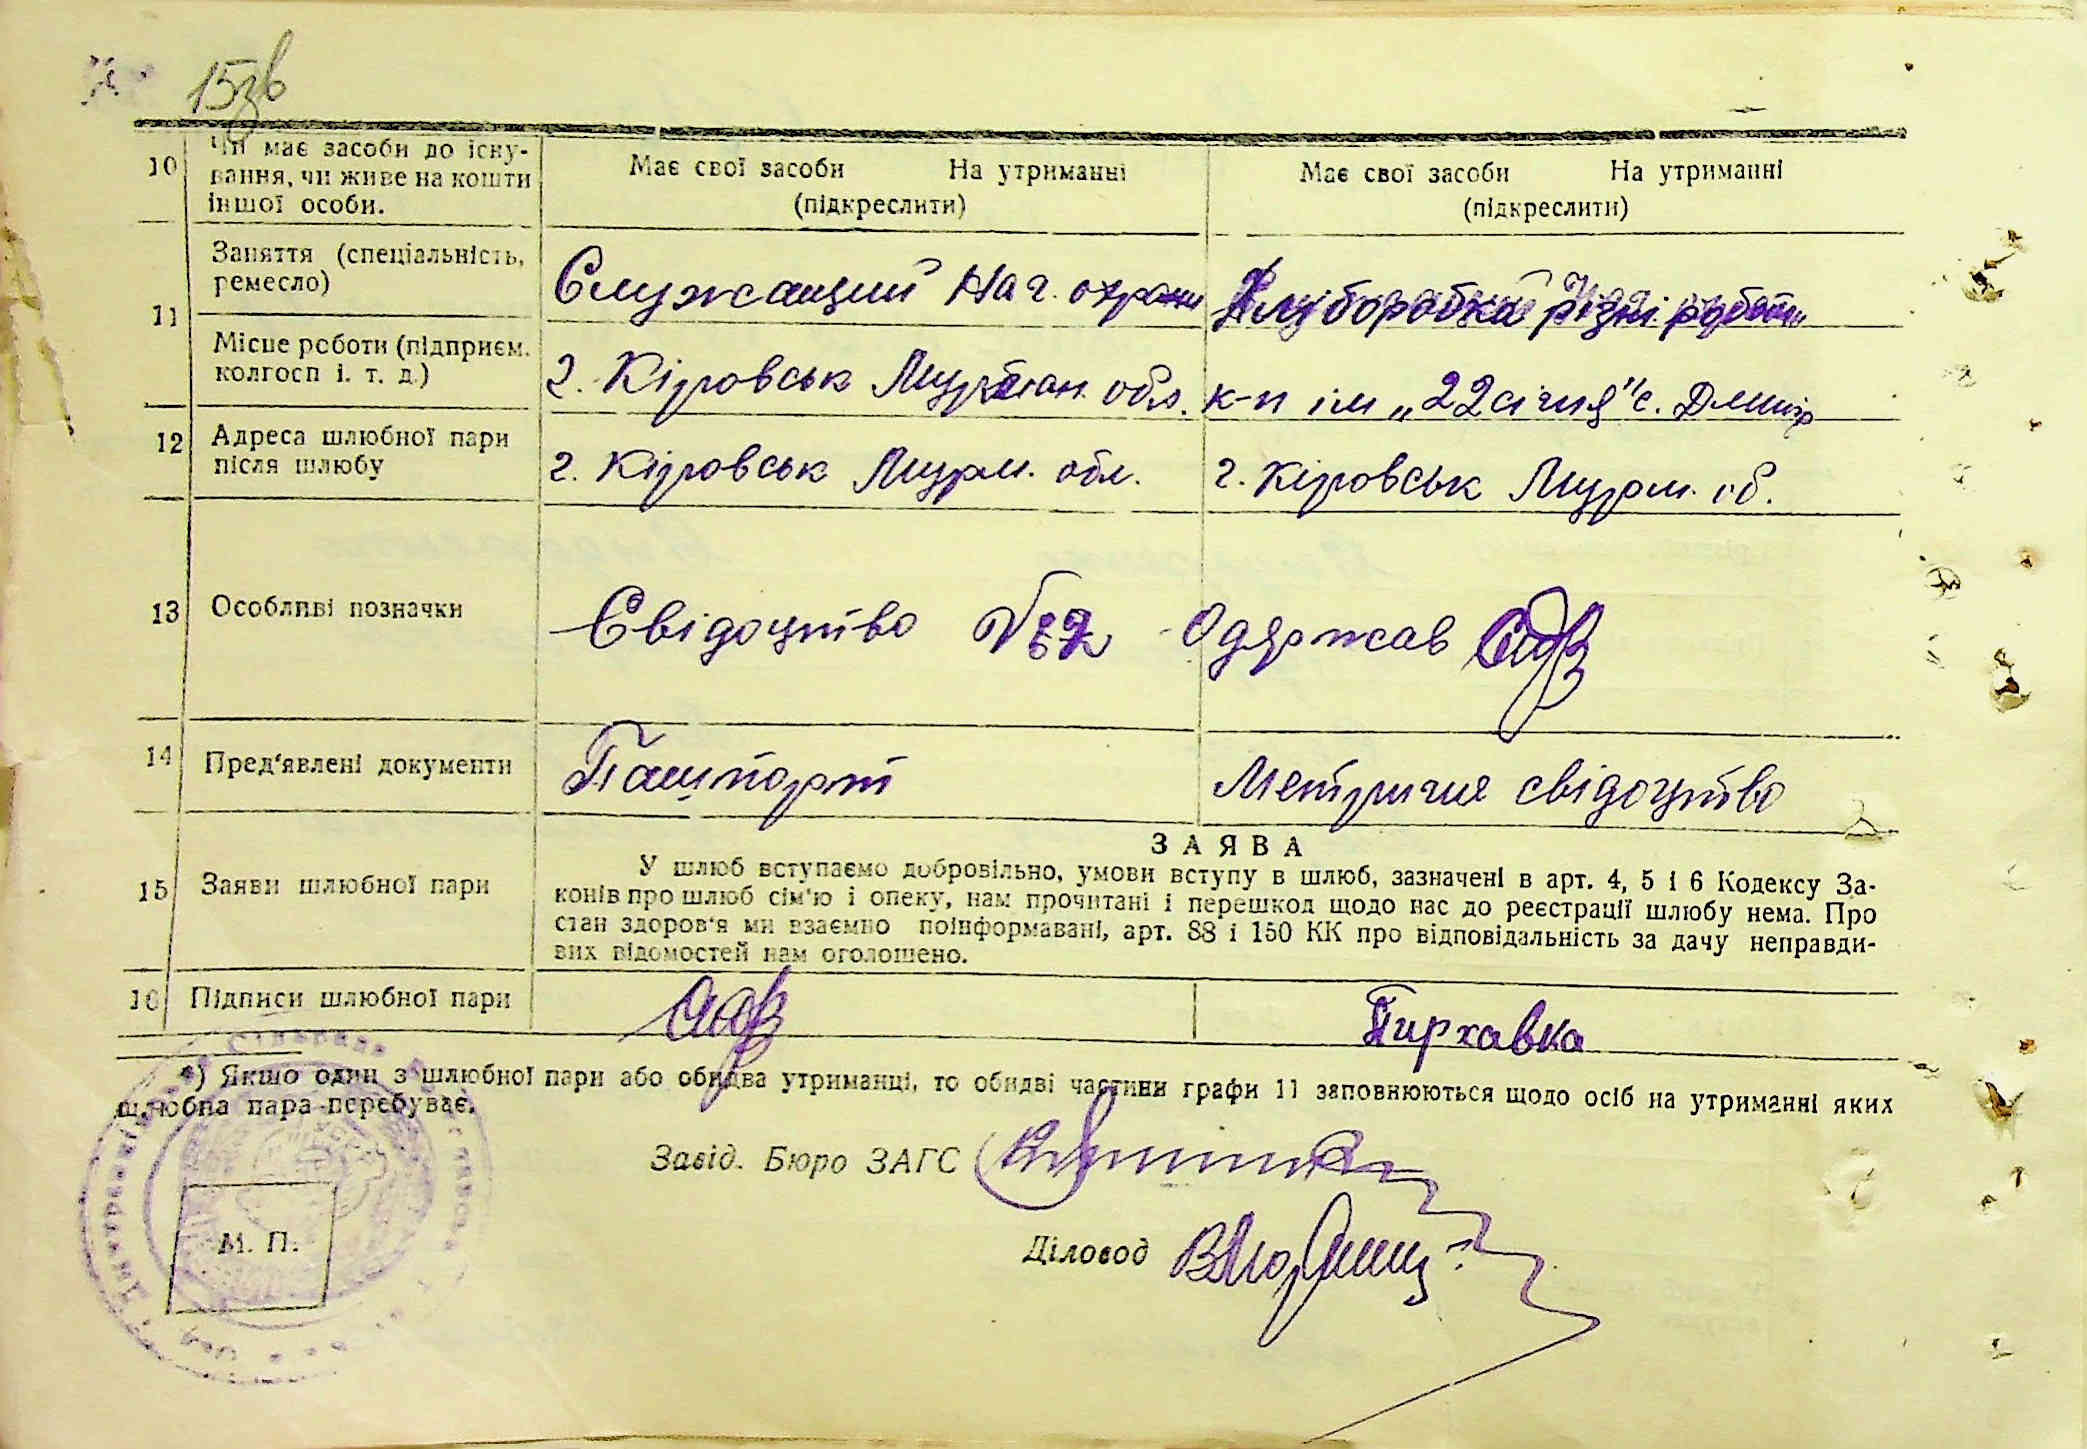 15зв
10
Чи має засоби до існу-
вання, чи живе на кошти
іншої особи.
Має свої засоби На утриманні
(підкреслити)
Має свої засоби На утриманні
(підкреслити)
11
Заняття (спеціальність,
ремесло)
Служащий Нач. охрани
Хліборобка різні роботи
Місце роботи (підприєм.
колгосп і. т. д.)
г. Кіровськ Мурман. обл.
к-п ім „22 січня" с. Дмитр
12
Адреса шлюбної пари
після шлюбу
г. Кіровськ Мурм. обл.
г. Кіровськ Мурм. об.
13
Особливі позначки
Свідоцтво Одержав
14
Пред'явлені документи
Пашпорт
Метричне свідоцтво
15
Заяви шлюбної пари
ЗАЯВА
У шлюб вступаємо добровільно, умови вступу в шлюб, зазначені в арт. 4, 5 і 6 Кодексу За-
конів про шлюб сім'ю і опеку, нам прочитані і перешкод щодо нас до реєстрації шлюбу нема. Про
стан здоров'я ми взаємно поінформавані, арт. 88 і 150 КК про відповідальність за дачу неправди-
вих відомостей нам оголошено.
16
Підписи шлюбної пари
Пирхавка
*) Якщо один з шлюбної пари або обидва утриманці, то обидві частини графи 11 заповнюються щодо осіб на утриманні яких
шлюбна пара перебуває.
Завід. Бюро ЗАГС
М. П.
Діловод